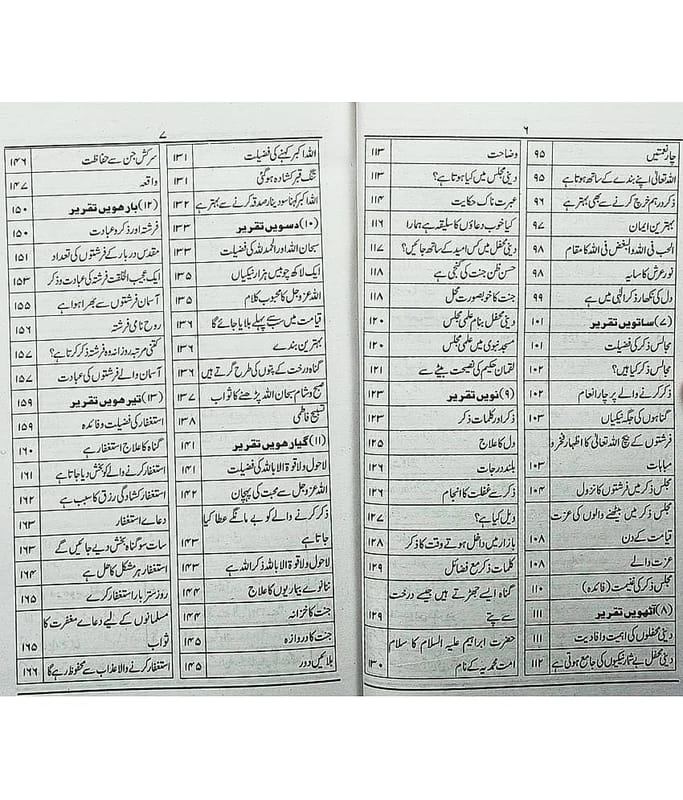 ۶
چار نعمتیں ۹۵
اللہ تعالیٰ اپنے بندے کے ساتھ ہوتا ہے ۹۵
ذکر درہم خرچ کرنے سے بھی بہتر ہے ۹۶
بہترین ایمان ۹۷
الحب فی اللہ والبغض فی اللہ کا مقام ۹۸
نور عرش کا سایہ ۹۸
دل کی نکھار ذکر الٰہی میں ہے ۹۹
(۷) ساتویں تقریر ۱۰۱
مجالس ذکر کی فضیلت ۱۰۱
مجالس ذکر کیا ہیں؟ ۱۰۲
ذکر کرنے والے پر چار انعام ۱۰۲
گناہوں کی جگہ نیکیاں ۱۰۳
فرشتوں کے بیچ اللہ تعالیٰ کا اظہار فخر و
مباہات ۱۰۳
مجلس ذکر میں فرشتوں کا نزول ۱۰۴
مجلس ذکر میں بیٹھنے والوں کی عزت
قیامت کے دن ۱۰۸
عزت والے ۱۰۸
مجلس ذکر کی غنیمت (فائدہ) ۱۱۰
(۸) آٹھویں تقریر ۱۱۱
دینی محفلوں کی اہمیت و افادیت ۱۱۱
دینی محفل بے شمار نیکیوں کی جامع ہوتی ہے ۱۱۲
وضاحت ۱۱۳
دینی مجلس میں کیا ہوتا ہے؟ ۱۱۳
عبرت ناک حکایت ۱۱۴
کیا خوب دعاؤں کا سلیقہ ہے ہمارا ۱۱۶
دینی محفل میں کس امید کے ساتھ جائیں؟ ۱۱۷
حسن ظن جنت کی کنجی ہے ۱۱۸
جنت کا خوبصورت محل ۱۱۸
دینی محفل بنام علمی مجلس ۱۲۰
مسجد نبوی میں علمی مجلس ۱۲۰
لقمان حکیم کی نصیحت بیٹے سے ۱۲۱
(۹) نویں تقریر ۱۲۳
ذکر اور کلمات ذکر ۱۲۳
دل کا علاج ۱۲۵
بلند درجات ۱۲۶
ذکر سے غفلت کا انجام ۱۲۶
ویل کیا ہے؟ ۱۲۷
بازار میں داخل ہوتے وقت کا ذکر ۱۲۸
کلمات ذکر مع فضائل ۱۲۹
گناہ ایسے جھڑتے ہیں جیسے درخت
سے پتے ۱۲۹
حضرت ابراہیم علیہ السلام کا سلام
امت محمدیہ کے نام ۱۳۰
۷
اللہ اکبر کہنے کی فضیلت ۱۳۱
تنگ قبر کشادہ ہو گئی ۱۳۱
اللہ اکبر کہنا سو دینار صدقہ کرنے سے بہتر ہے ۱۳۲
(۱۰) دسویں تقریر ۱۳۳
سبحان اللہ اور الحمد للہ کی فضیلت ۱۳۳
ایک لاکھ چوبیس ہزار نیکیاں ۱۳۵
اللہ عزوجل کا محبوب کلام ۱۳۵
قیامت میں سب سے پہلے بلایا جائے گا ۱۳۶
بہترین بندے ۱۳۶
گناہ درخت کے پتوں کی طرح گرتے ہیں ۱۳۶
صبح و شام سبحان اللہ پڑھنے کا ثواب ۱۳۷
تسبیح فاطمی ۱۳۸
(۱۱) گیارھویں تقریر ۱۴۱
لا حول ولا قوۃ الا باللہ کی فضیلت ۱۴۱
اللہ عزوجل سے محبت کی پہچان ۱۴۲
ذکر کرنے والے کو بے مانگے عطا کیا
جاتا ہے ۱۴۳
لا حول ولا قوۃ الا باللہ ذکر اللہ ہے ۱۴۳
ننانوے بیماریوں کا علاج ۱۴۴
جنت کا خزانہ ۱۴۴
جنت کا دروازہ ۱۴۵
بلائیں دور ۱۴۵
سرکش جن سے حفاظت ۱۴۶
واقعہ ۱۴۷
(۱۲) بارھویں تقریر ۱۵۰
فرشتہ اور ذکر و عبادت ۱۵۰
مقدس دربار کے فرشتوں کی تعداد ۱۵۱
ایک عجیب الخلقت فرشتہ کی عبادت و ذکر ۱۵۳
آسمان فرشتوں سے بھرا ہوا ہے ۱۵۵
روح نامی فرشتہ ۱۵۶
کتنی مرتبہ روزانہ وہ فرشتہ ذکر کرتا ہے؟ ۱۵۷
آسمان والے فرشتوں کی عبادت ۱۵۷
(۱۳) تیرھویں تقریر ۱۵۹
استغفار کی فضیلت و فائدہ ۱۵۹
گناہ کا علاج استغفار ہے ۱۶۰
استغفار کرنے والے کو بخش دیا جاتا ہے ۱۶۱
استغفار کشادگی رزق کا سبب ہے ۱۶۲
دعائے استغفار ۱۶۳
سات سو گناہ بخش دیے جائیں گے ۱۶۳
استغفار ہر مشکل کا حل ہے ۱۶۴
روز ستر بار استغفار کرے ۱۶۵
مسلمانوں کے لیے دعائے مغفرت کا
ثواب ۱۶۵
استغفار کرنے والا عذاب سے محفوظ رہے گا ۱۶۶